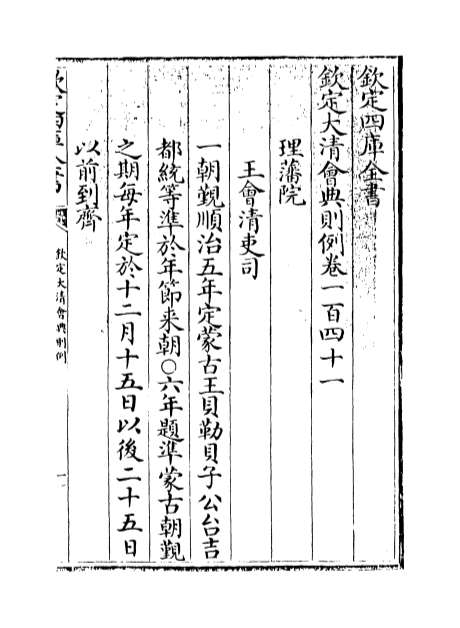 欽定四庫全書
欽定大清會典則例卷一百四十一
理藩院
王會清吏司
一朝覲順治五年定蒙古王貝勒貝子公台吉
都統等準於年節來朝○六年題準蒙古朝覲
之期每年定於十二月十五日以後二十五日
以前到齊
欽定大清會典則例